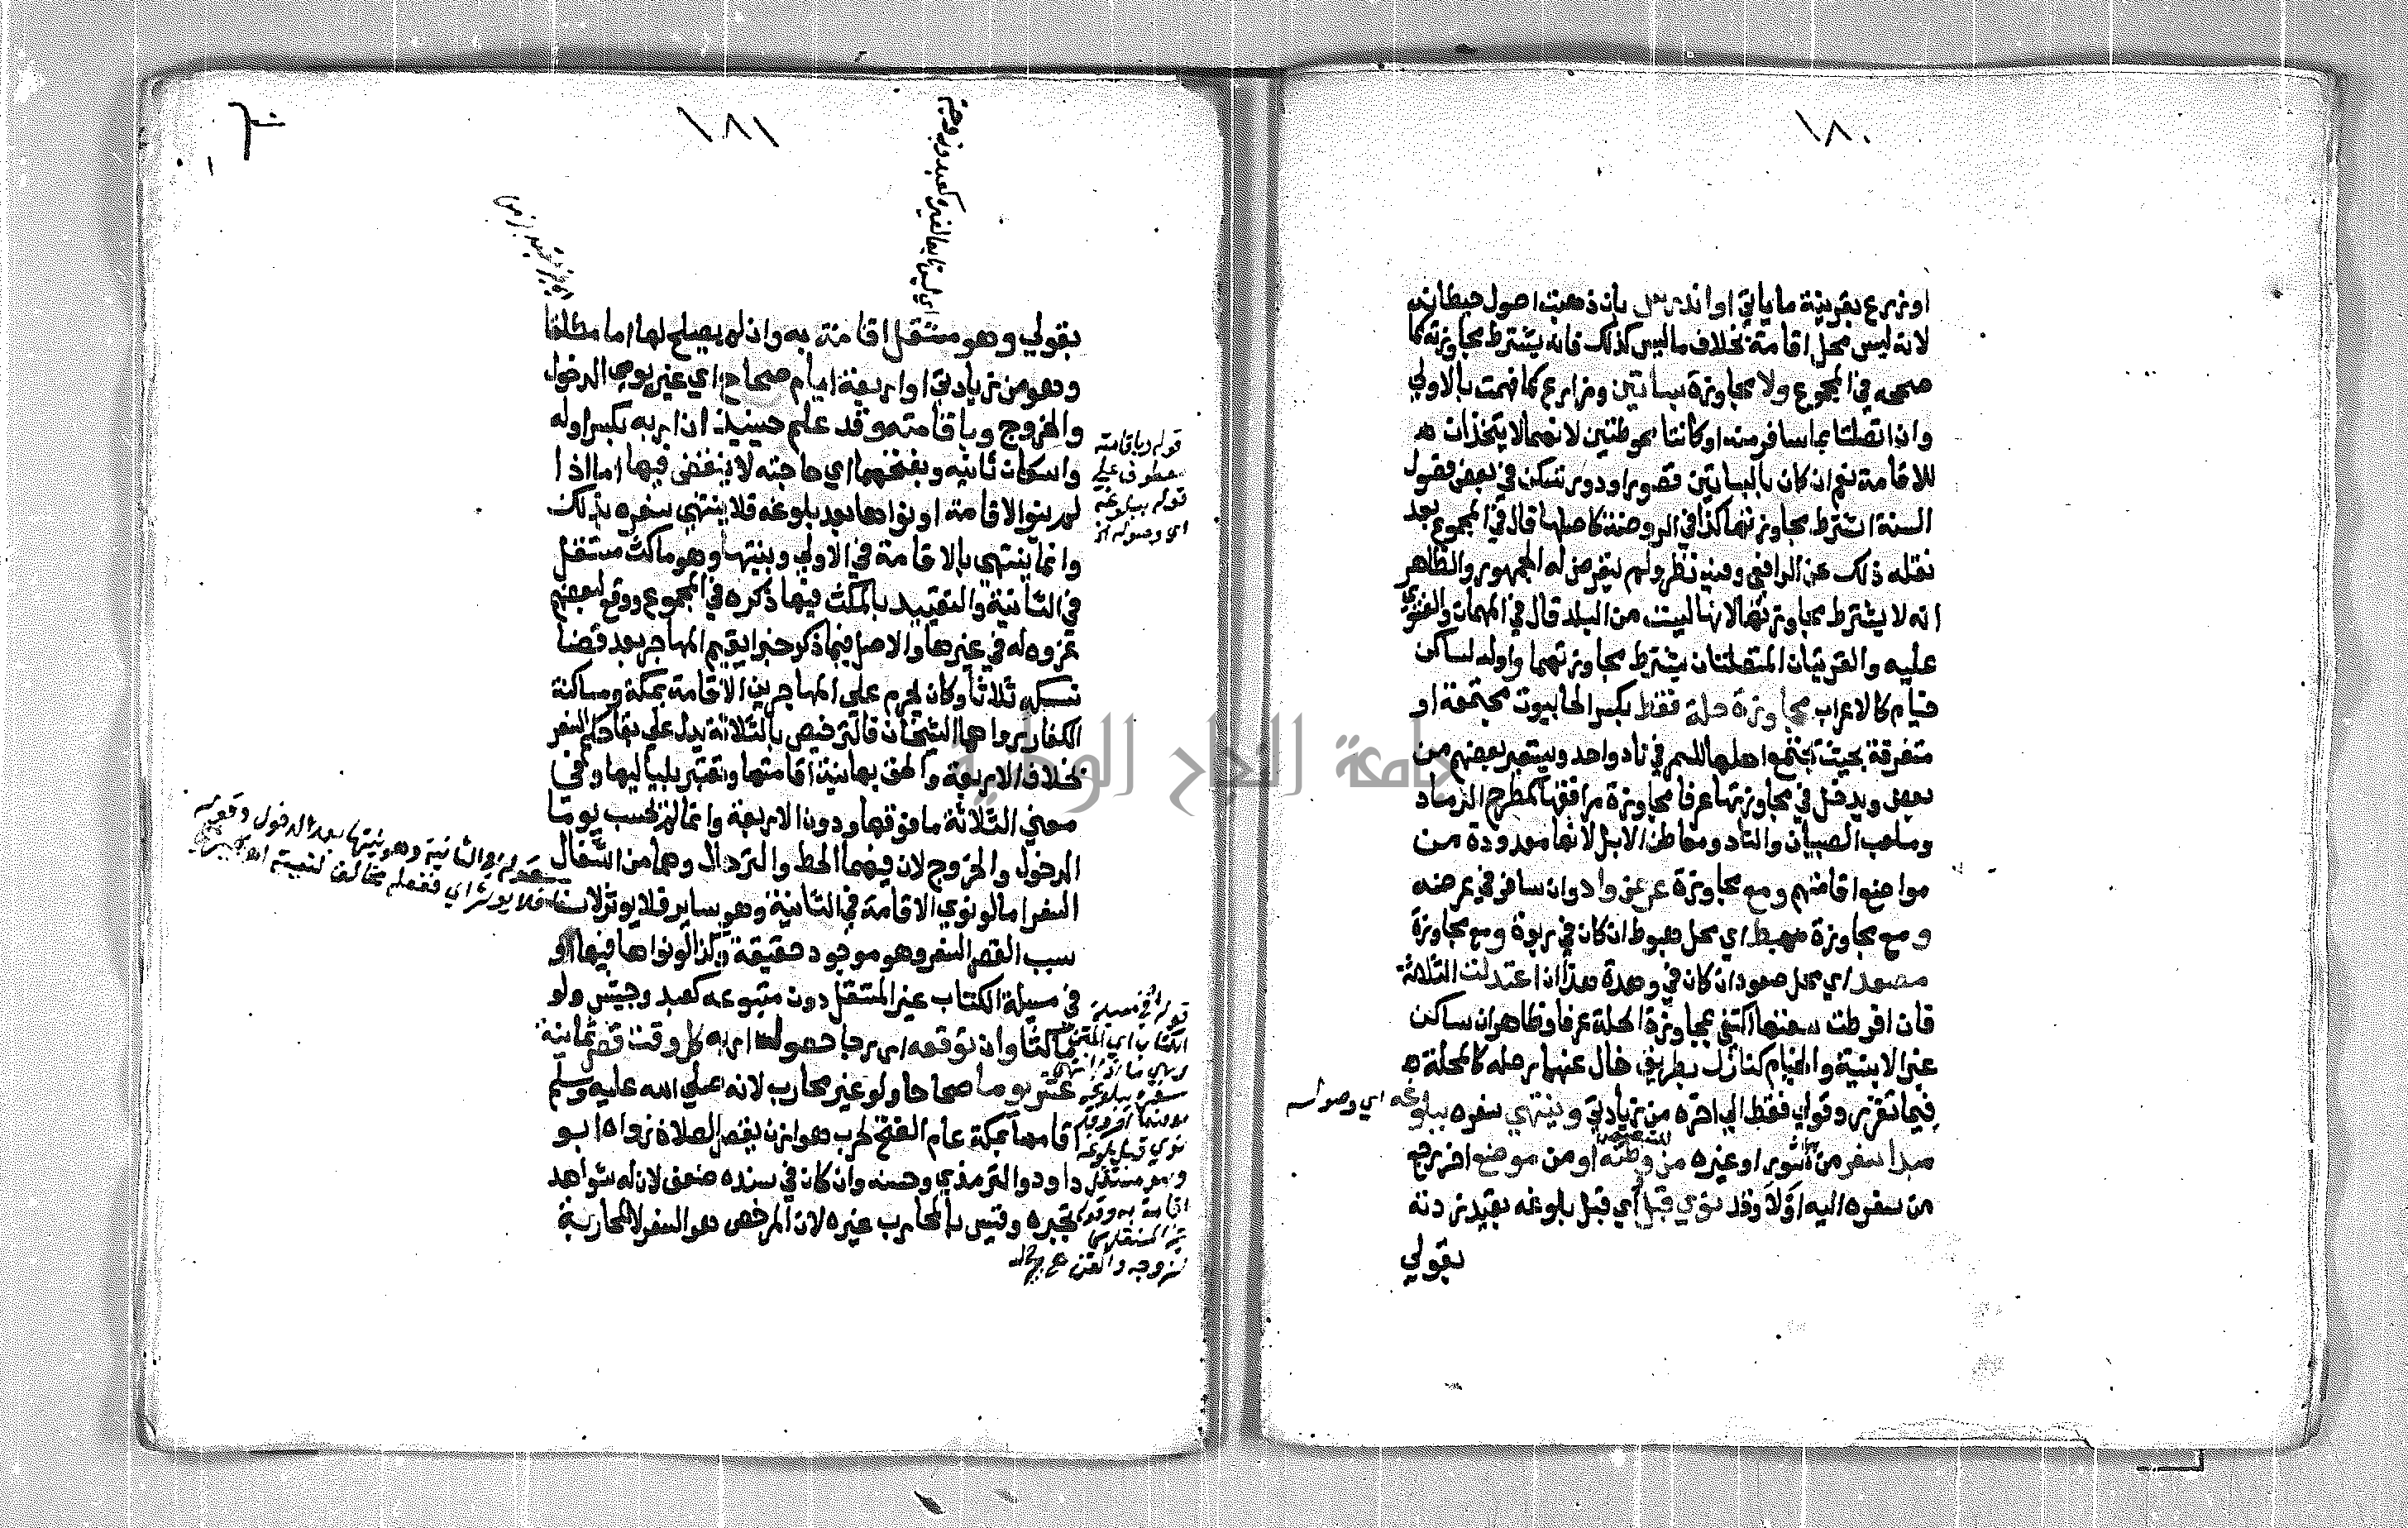 ١٨٠
او زرع بقرينة ما ياتي او اندرس بان ذهبت اصول حيطانه
لانه ليس محل اقامة بخلاف ما ليس كذلك فانه يشترط مجاوزته كما
صححه في المجموع ولا مجاوزة بساتين ومزارع كما فهمت بالاولي
وان اتصلتا بما سافر منه او كانتا محوطتين لانهما لا يتخذان
للاقامة نعم ان كان بالبساتين قصور او دور تسكن في بعض فصول
السنة اشترط مجاوزتها كذا في الروضة كاصلها قال في المجموع بعد
نقله ذلك عن الرافعي وفيه نظر ولم يتعرض له الجمهور والظاهر
انه لا يشترط مجاوزتها لانها ليست من البلد قال في المهمات والفتوي
عليه والقريتان المتصلتان يشترط مجاوزتهما واوله لساكن
خيام كالاعراب مجاوزة حلة فقط بكسر الحا بيوت مجتمعة او
متفرقة بحيث يجتمع اهلها للسمر في ناد واحد ويستعير بعضهم من
بعض ويدخل في مجاوزتها عرفا مجاوزة مرافقها كمطرح الرماد
وملعب الصبيان والناد ومعاطن الابل لانها معدودة من
مواضع اقامتهم ومع مجاوزة عرض وادوان سافر في عرضه
ومع مجاوزة مهبط اي محل هبوط ان كان في ربوة ومع مجاوزة
مصعد اي محل صعود ان كان في وهدة هذا ان اعتدلت الثلاثة
فان افرطت سعتها اكتفي بمجاوزة الحلة عرفا وظاهر ان ساكن
غير الابنية والخيام كنازل بطريق خال عنها رحله كالحلة
فيما تقرر وقولي فقط الي اخره من زيادتي وينتهي سفره ببلوغه اي وصوله
مبدا سفر من سور او غيره من وطنه او من موضع اخر رجع
من سفره اليه اولا وقد نوي قبل اي قبل بلوغه بقيد زدته
بقولي
١٨١
بقولي وهو مستقل اقامة به وان لم يصلح لها اما مطلقا
وهو من زيادتي او اربعة ايام صحاح اي غير يومي الدخول
والخروج وباقامته وقد علم حينيذ ان اربه بكسر اوله
واسكان ثانيه وبفتحهما اي حاجته لا ينقضي فيها اما اذا
لم ينو الاقامة او نواها بعد بلوغه فلا ينتهي سفره بذلك
وانما ينتهي بالاقامة في الاولي وبنيتها وهو ماكث مستقل
في الثانية والتقييد بالمكث فيها ذكره في المجموع ووقع لبعضهم
عزوه له في غيرها والاصل فيما ذكر خبر يقيم المهاجر بعد قضا
نسكه ثلاثا وكان يحرم علي المهاجرين الاقامة بمكة ومساكنة
الكفار رواهما الشيخان فالترخيص بالثلاثة يدل علي بقا حكم السفر
بخلاف الاربعة والحق بها نية اقامتها وتعتبر بلياليها وفي
معني الثلاثة ما فوقها ودون الاربعة وانما لم يحسب يوما
الدخول والخروج لان فيهما الحط والترحال وهما من اشغال
السفر اما لو نوي الاقامة في الثانية وهو ساير فلا يوثر لان
سبب القصر السفر وهو موجود حقيقة وكذا لو نواها فيها او
في مسيلة الكتاب غير المستقل دون متبوعه كعبد وجيش ولو
ماكثا وان توقعه اي رجا حصول اربه كل وقت قصر ثمانية
عشر يوما صحاحا ولو غير محارب لانه صلي الله عليه وسلم
اقامها بمكة عام الفتح لحرب هوازن يقصر الصلاة رواه ابو
داود والترمذي وحسنه وان كان في سنده ضعف لان له شواهد
تجبره وقيس بالمحارب غيره لان المرخص هو السفر لا المحاربة
قوله وباقامته
معطوف علي
قوله ببلوغه
اي وصوله
قوله في الثانية وهو نيتها بعد الدخول وقوله
فلا يوثر اي ففعله مخالف لنيته
قوله في مسيلة
الكتاب اي المتن
جامعة النجاح الوطنية